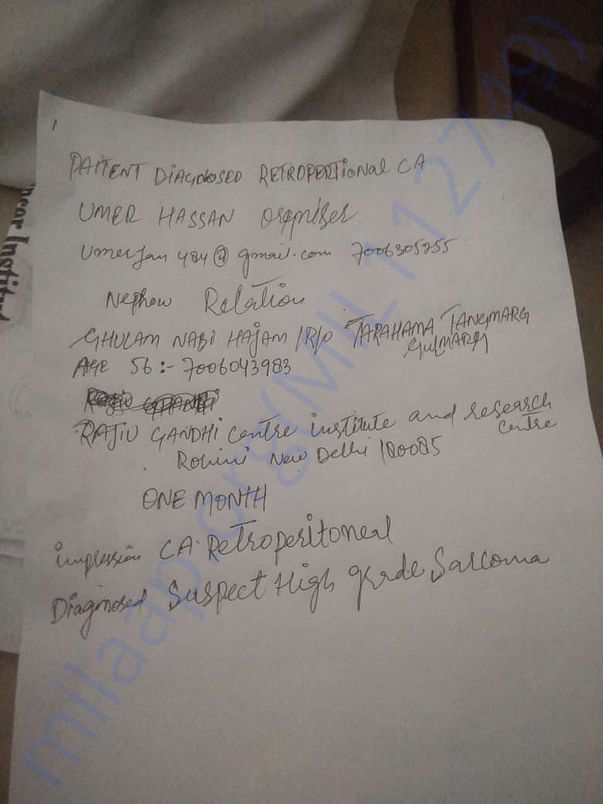 1
PAITENT DIAGNOSED RETROPERTIONAL CA
UMER HASSAN Organiser
Umerjan484@gmail.com 7006305855
Nephew Relation
GHULAM NABI HAJAM /R/O TARAHAMA TANGMARG
GULMARG
AGE 56:- 7006043983
RAJIV GANDHI centre institute and research
centre
Rohini New Delhi 110085
ONE MONTH
impression CA Retroperitoneal
Diagnosed Suspect High grade Sarcoma
ncer Instit
milaap.org(MIL112749)